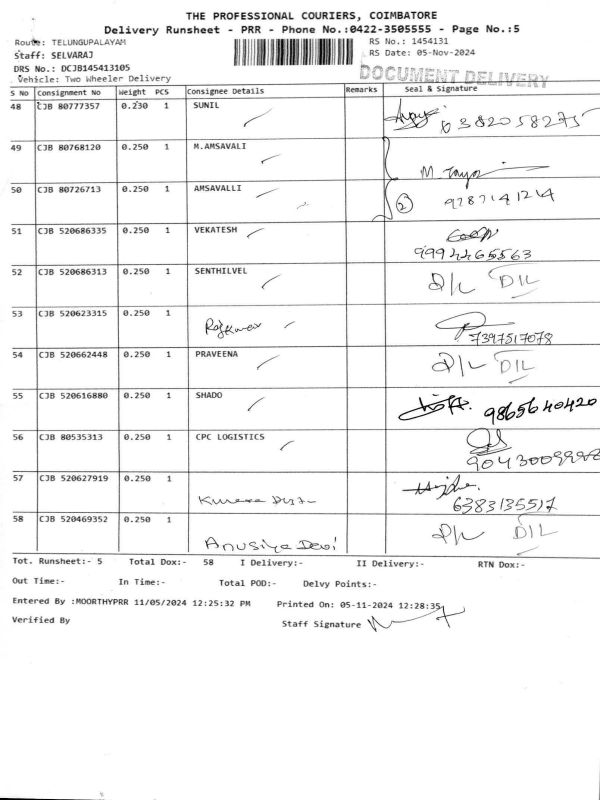 THE PROFESSIONAL COURIERS, COIMBATORE
Delivery Runsheet - PRR - Phone No.:0422-3505555 - Page No.:5
Route: TELUNGUPALAYAM
RS No.: 1454131
Staff: SELVARAJ
RS Date: 05-Nov-2024
DRS No.: DCJB145413105
DOCUMENT DELIVERY
Vehicle: Two Wheeler Delivery
S No Consignment No Weight PCS Consignee Details Remarks Seal & Signature
48 CJB 80777357 0.230 1 SUNIL
6382058275
49 CJB 80768120 0.250 1 M.AMSAVALI
50 CJB 80726713 0.250 1 AMSAVALLI
2 9787141214
51 CJB 520686335 0.250 1 VEKATESH
9994465563
52 CJB 520686313 0.250 1 SENTHILVEL D/L DIL
53 CJB 520623315 0.250 1
Rajkumar 7397517078
54 CJB 520662448 0.250 1 PRAVEENA D/L DIL
55 CJB 520616880 0.250 1 SHADO
9865640420
56 CJB 80535313 0.250 1 CPC LOGISTICS
57 CJB 520627919 0.250 1
6383135517
58 CJB 520469352 0.250 1 D/L DIL
Anusiya Devi
Tot. Runsheet:- 5 Total Dox:- 58 I Delivery:- II Delivery:- RTN Dox:-
Out Time:- In Time:- Total POD:- Delvy Points:-
Entered By :MOORTHYPRR 11/05/2024 12:25:32 PM Printed On: 05-11-2024 12:28:35
Verified By Staff Signature